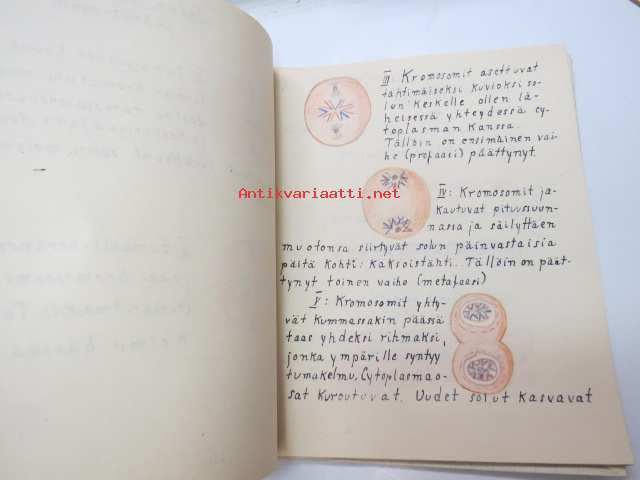 III: Kromosomit asettuvat
tähtimäiseksi kuvioksi so-
lun keskelle ollen lä-
heisessä yhteydessä cy-
toplasman kanssa.
Tällöin on ensimäinen vai-
he (profaasi) päättynyt.
Antikvariaatti.net
IV: Kromosomit ja-
kautuvat pituussuun-
nassa ja säilyttäen
muotonsa siirtyvät solun päinvastaisia
päitä kohti: kaksoistähti. Tällöin on päät-
tynyt toinen vaihe (metafaasi)
V: Kromosomit yhty-
vät kummassakin päässä
taas yhdeksi rihmaksi,
jonka ympärille syntyy
tumakelmu. Cytoplasmao-
sat kuroutuvat. Uudet solut kasvavat